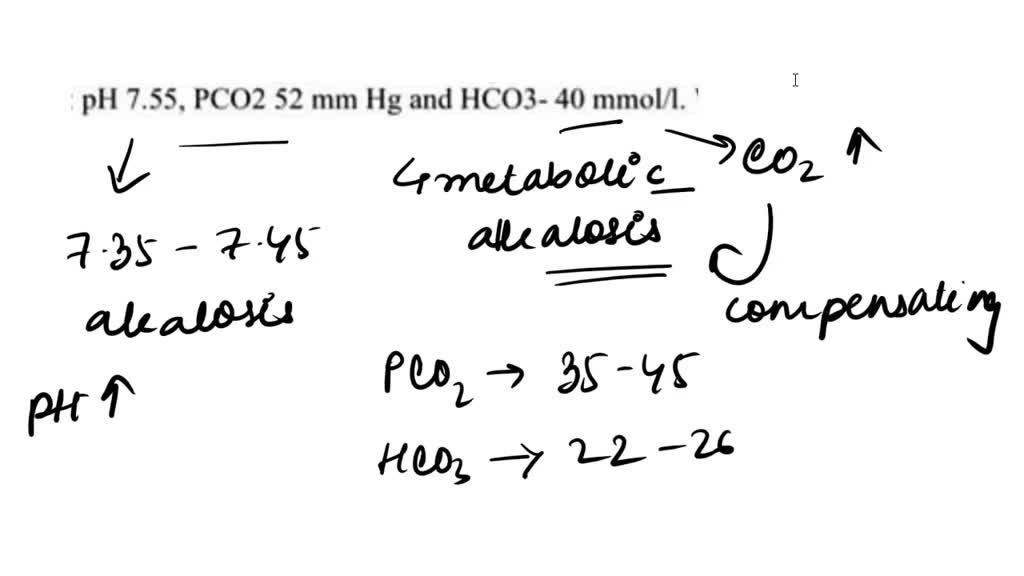 : pH 7.55, PCO2 52 mm Hg and HCO3- 40 mmol/l. '
↓
7.35 - 7.45
alkalosis
pH ↑
↳ metabolic
alkalosis
→ CO₂ ↑
compensating
PCO₂ → 35-45
HCO₃ → 22-26